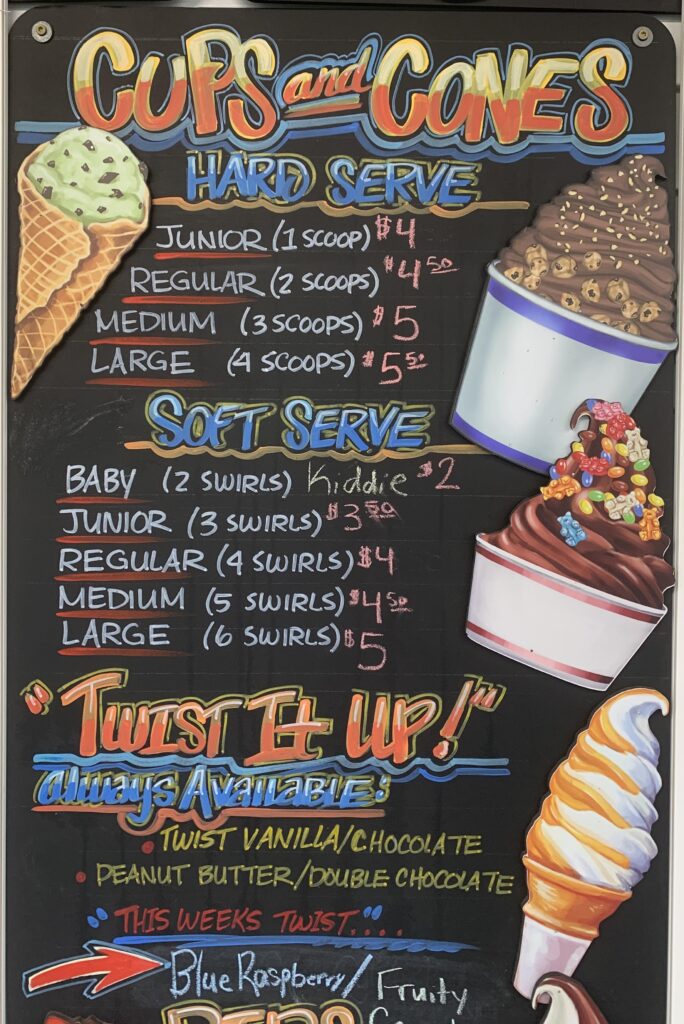 CUPS and CONES
HARD SERVE
JUNIOR (1 SCOOP) $4
REGULAR (2 SCOOPS) $4 50
MEDIUM (3 SCOOPS) $5
LARGE (4 SCOOPS) $5 50
SOFT SERVE
BABY (2 SWIRLS) Kiddie $2
JUNIOR (3 SWIRLS) $3 50
REGULAR (4 SWIRLS) $4
MEDIUM (5 SWIRLS) $4 50
LARGE (6 SWIRLS) $5
"TWIST IT UP!"
Always AVAILABLE:
• TWIST VANILLA/CHOCOLATE
• PEANUT BUTTER/DOUBLE CHOCOLATE
"THIS WEEKS TWIST"....
Blue Raspberry/ Fruity